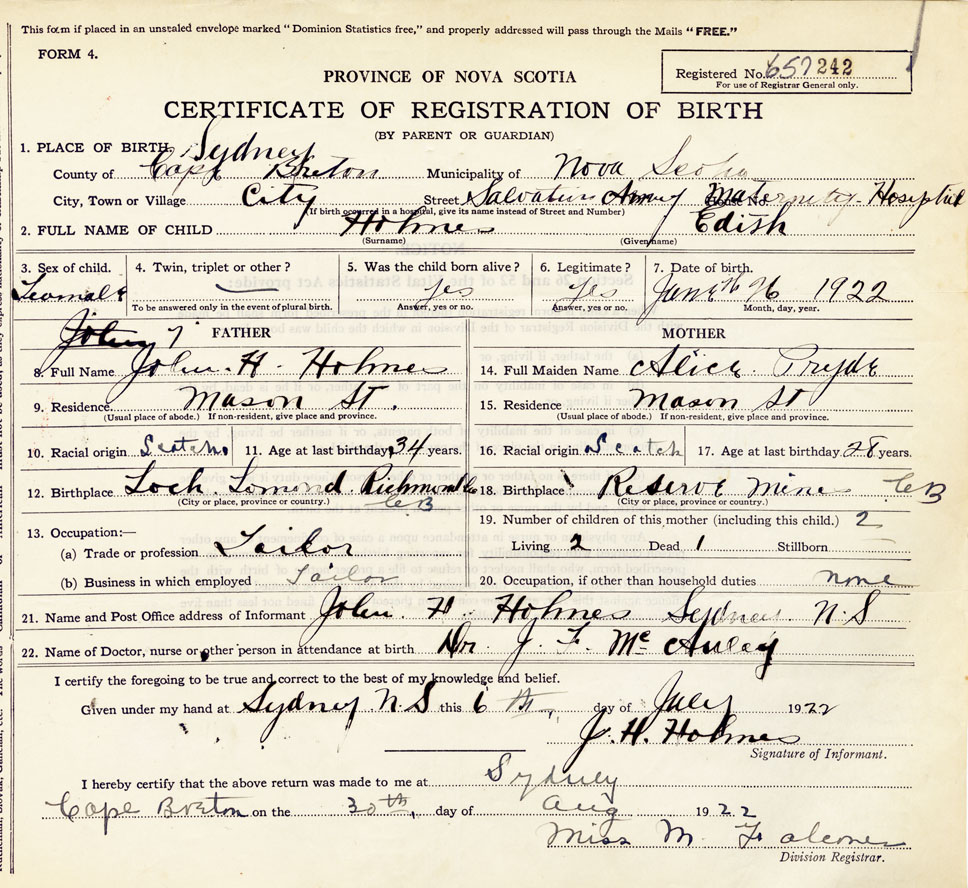 This form if placed in an unsealed envelope marked "Dominion Statistics free," and properly addressed will pass through the Mails "FREE."
FORM 4.
PROVINCE OF NOVA SCOTIA
Registered No. 657242
For use of Registrar General only.
CERTIFICATE OF REGISTRATION OF BIRTH
(BY PARENT OR GUARDIAN)
1. PLACE OF BIRTH Sydney
County of Cape Breton Municipality of Nova Scotia
City, Town or Village City Street Salvation Army Maternity Hospital House No.
(If birth occurred in a hospital, give its name instead of Street and Number)
2. FULL NAME OF CHILD Holmes Edish
(Surname) (Given name)
3. Sex of child. 4. Twin, triplet or other? 5. Was the child born alive? 6. Legitimate? 7. Date of birth.
yes yes June 26 1922
To be answered only in the event of plural birth. Answer, yes or no. Answer, yes or no. Month, day, year.
John FATHER MOTHER
8. Full Name John. H. Holmes 14. Full Maiden Name Alice Pryde
9. Residence Mason St. 15. Residence Mason St
(Usual place of abode.) If non-resident, give place and province. (Usual place of abode.) If non-resident, give place and province.
10. Racial origin Scotch 11. Age at last birthday 34 years. 16. Racial origin Scotch 17. Age at last birthday 28 years.
12. Birthplace Loch Lomond Richmond Co CB 18. Birthplace Reserve Mines CB
(City or place, province or country.) (City or place, province or country.)
13. Occupation:— 19. Number of children of this mother (including this child.) 2
(a) Trade or profession Tailor Living 2 Dead 1 Stillborn
(b) Business in which employed Tailor 20. Occupation, if other than household duties none
21. Name and Post Office address of Informant John. H. Holmes Sydney N.S
22. Name of Doctor, nurse or other person in attendance at birth Dr. J. F. Mc Auley
I certify the foregoing to be true and correct to the best of my knowledge and belief.
Given under my hand at Sydney N.S this 6 th, day of July 1922
J. H. Holmes
Signature of Informant.
I hereby certify that the above return was made to me at Sydney
Cape Breton on the 30th, day of Aug 1922
Miss M. Falconer
Division Registrar.